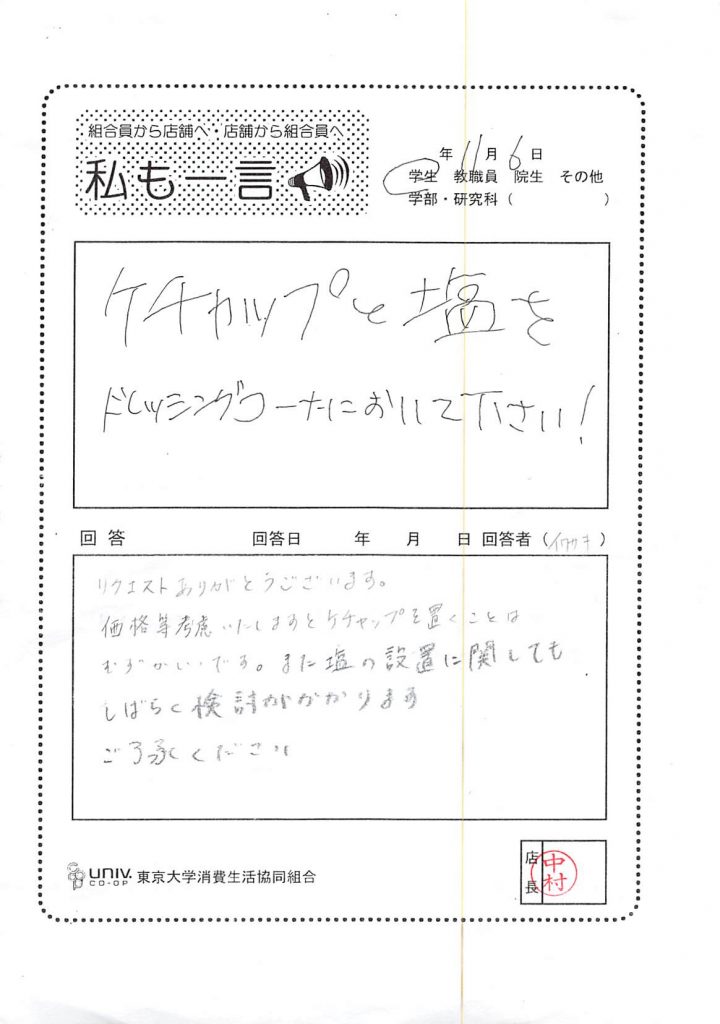 組合員から店舗へ・店舗から組合員へ
私も一言
年 11月 6日
学生 教職員 院生 その他
学部・研究科( )
ケチャップと塩を
ドレッシングコーナにおいて下さい!
回答 回答日 年 月 日 回答者(イワサキ)
リクエストありがとうございます。
価格等考慮いたしますとケチャップを置くことは
むずかしいです。また塩の設置に関しても
しばらく検討がかかります
ご了承ください
UNIV.
CO-OP 東京大学消費生活協同組合
店長
中村